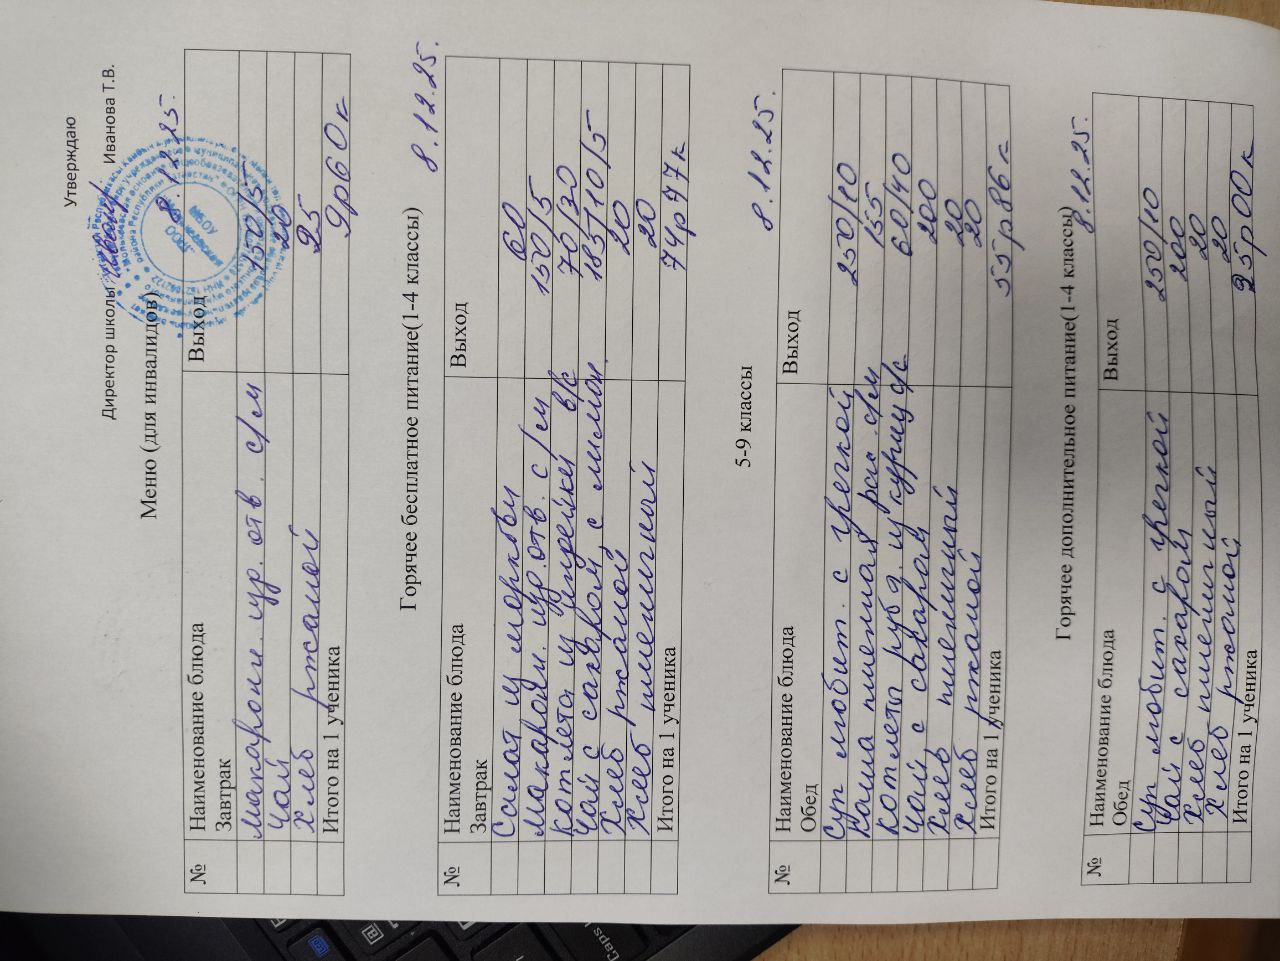 Утверждаю
Директор школы Иванова Т.В.
Меню (для инвалидов) 8.12.25.
№ Наименование блюда Выход
Завтрак
макарон. изд. отв. с/м 150/5
чай 20
хлеб ржаной 25
Итого на 1 ученика 9р60к
Горячее бесплатное питание(1-4 классы) 8.12.25.
№ Наименование блюда Выход
Завтрак
Салат из моркови 60
макарон. изд. отв. с/м 150/5
котлета из индейки в/с 70/30
Чай с сахаром, с лимон. 185/10/5
Хлеб ржаной 20
Хлеб пшеничный 20
Итого на 1 ученика 74р77к
5-9 классы 8.12.25.
№ Наименование блюда Выход
Обед
Суп любит. с гречкой 250/10
каша пшенная рас. с/м 155
котлеты руб д. из курицы с/с 60/40
чай с сахаром 200
Хлеб пшеничный 20
Хлеб ржаной 20
Итого на 1 ученика 55р86к
Горячее дополнительное питание(1-4 классы) 8.12.25.
№ Наименование блюда Выход
Обед
Суп любит. с гречкой 250/10
Чай с сахаром 200
Хлеб пшеничный 20
Хлеб ржаной 20
Итого на 1 ученика 25р00к
Caps